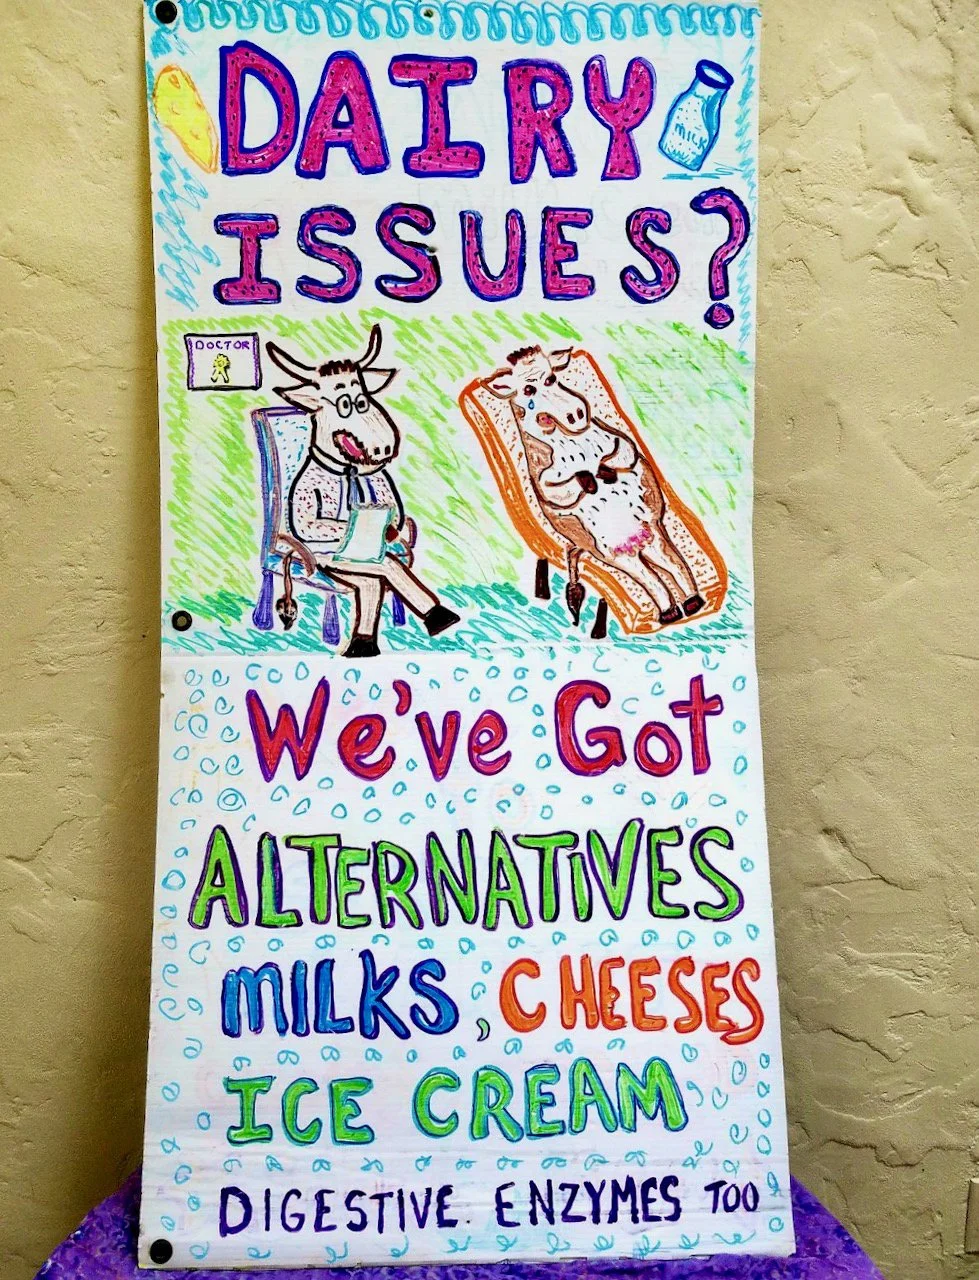 DAIRY
MILK
ISSUES?
DOCTOR
We've Got
ALTERNATIVES
MILKS, CHEESES
ICE CREAM
DIGESTIVE ENZYMES TOO